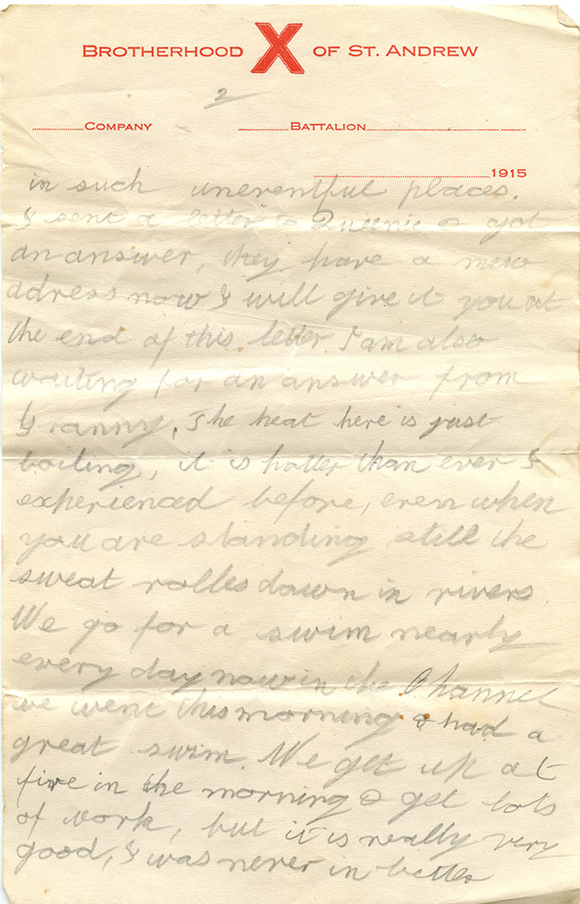 BROTHERHOOD X OF ST. ANDREW
2
COMPANY BATTALION
1915
in such uneventful places.
I sent a letter to Queenie & got
an answer, they have a new
adress now I will give it you at
the end of this letter. I am also
waiting for an answer from
Granny. The heat here is just
boiling, it is hotter than ever I
experienced before, even when
you are standing still the
sweat rolles down in rivers.
We go for a swim nearly
every day now in the Channel
we went this morning & had a
great swim. We get up at
five in the morning & get lots
of work, but it is really very
good, I was never in better